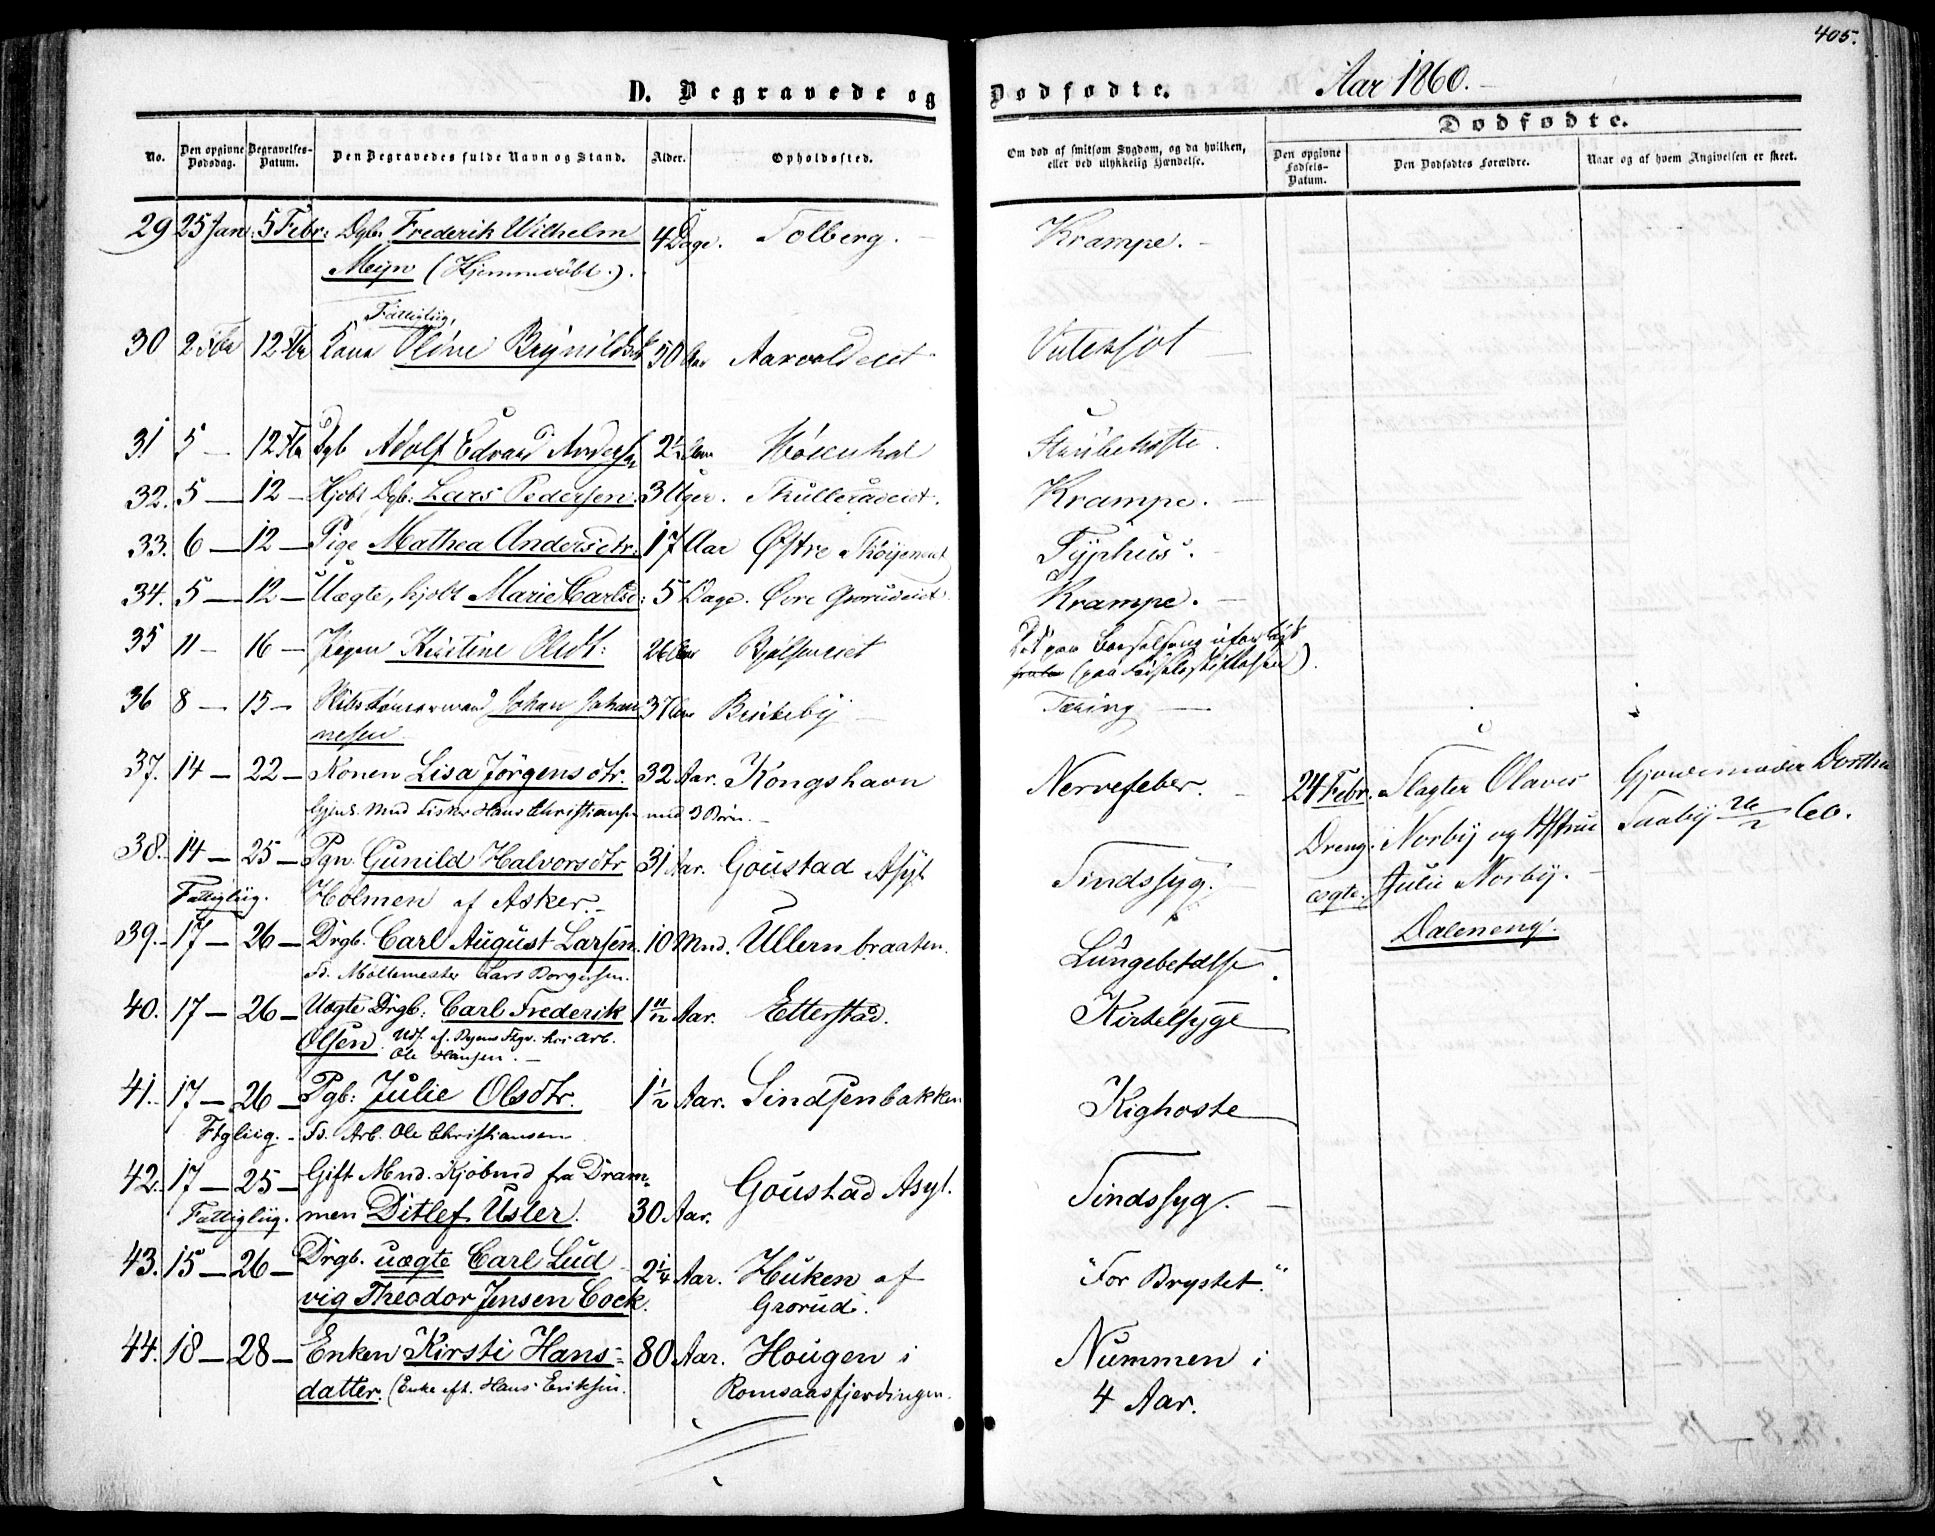 405.
D. Begravede og Dødfødte. Aar 1860.
Dødfødte.
No. Den opgivne Dødsdag. Begravelses-Datum. Den Begravedes fulde Navn og Stand. Alder. Opholdssted. Om død af smitsom Sygdom, og da hvilken, eller ved ulykkelig Hændelse. Den opgivne Fødsels-Datum. Den Dødfødtes Forældre. Naar og af hvem Angivelsen er skeet.
29 25 Jan: 5 Febr: Dgb. Frederik Wilhelm 4 Dage. Tolberg. Krampe.
Meyn (Hjemmedöbt.).
Fattigliig,
30 2 Febr 12 Febr Kone Oline Brynildsd 50 Aar Aarvoldeiet
31 5 — 12 Febr Dgb Adolf Edvard Andersen 2½ Aar Strubehoste.
32. 5 — 12 — Hjdbt Dgb: Lars Pedersen. 3 Uger. Krampe.
33. 6 — 12 — Pige Mathea Andersdtr. 17 Aar Østre Tøyeneiet Typhus.
34. 5 — 12 — Uægte, hjdbt Marie Carlsd: 5 Dage. Øvre Gorudeiet. Krampe.
35 11 — 16 — Pigen Kirstine Olsdt: 26 Aar Bjølseneiet
(paa Fødselsstiftelsen).
36 8 — 15 — Johan Johan 37 Aar Birkeby Tæring
nesen.
37. 14 — 22 — Konen Lisa Jörgensdtr. 32 Aar. Kongshavn Nervefeber. 24 Febr. Slagter Olaves Gjordemoder Dorthea
Gjens. Mnd Fisker Hans Christiansen med 3 Börn. Dreng. Norby og Hstrue Taaby 26/2 60.
38. 14 — 25 — Pgn. Gunild Halvorsdtr 31 Aar. Goustad Asyl Sindssyg. ægte. Julie Norby.
Fattigliig. Holmen af Asker. Dæleneng.
39. 17 — 26 — Drgb. Carl August Larsen. 10 Mnd. Ullernbraaten. Lungebetdlse.
Fs. Möllemester Lars Borgersen.
40. 17 — 26 — Uægte Drgb: Carl Frederik 1 11/12 Aar. Etterstad. Kirtelsyge
Olsen. Uds. af Byens Ftgv. hos Arb.
Ole Hansen.
41. 17 — 26 — Pgb: Julie Olsdtr. 1½ Aar. Sindsenbakken Kighoste
Ftgliig. Fs. Arb. Ole Christiansen
42. 17 — 25 — Gift Mnd. Kjöbmd fra Dram- Goustad Asyl. Sindssyg.
Fattigliig. men Ditlef Usler. 30 Aar.
43. 15 — 26 — Drgb. uægte Carl Lud 2¼ Aar. Huken af "For Brystet."
vig Theodor Jensen Cock. Grorud.
44. 18 — 28 — Enken Kirsti Hans- 80 Aar. Hougen i Nummen i
datter. (Enke eft. Hans Eriksen. Romsaasfjerdingen. 4 Aar.